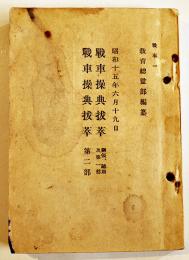 戰車一
敎育總監部編纂
昭和十五年六月十九日
戰車操典拔萃
戰車操典拔萃 第二部